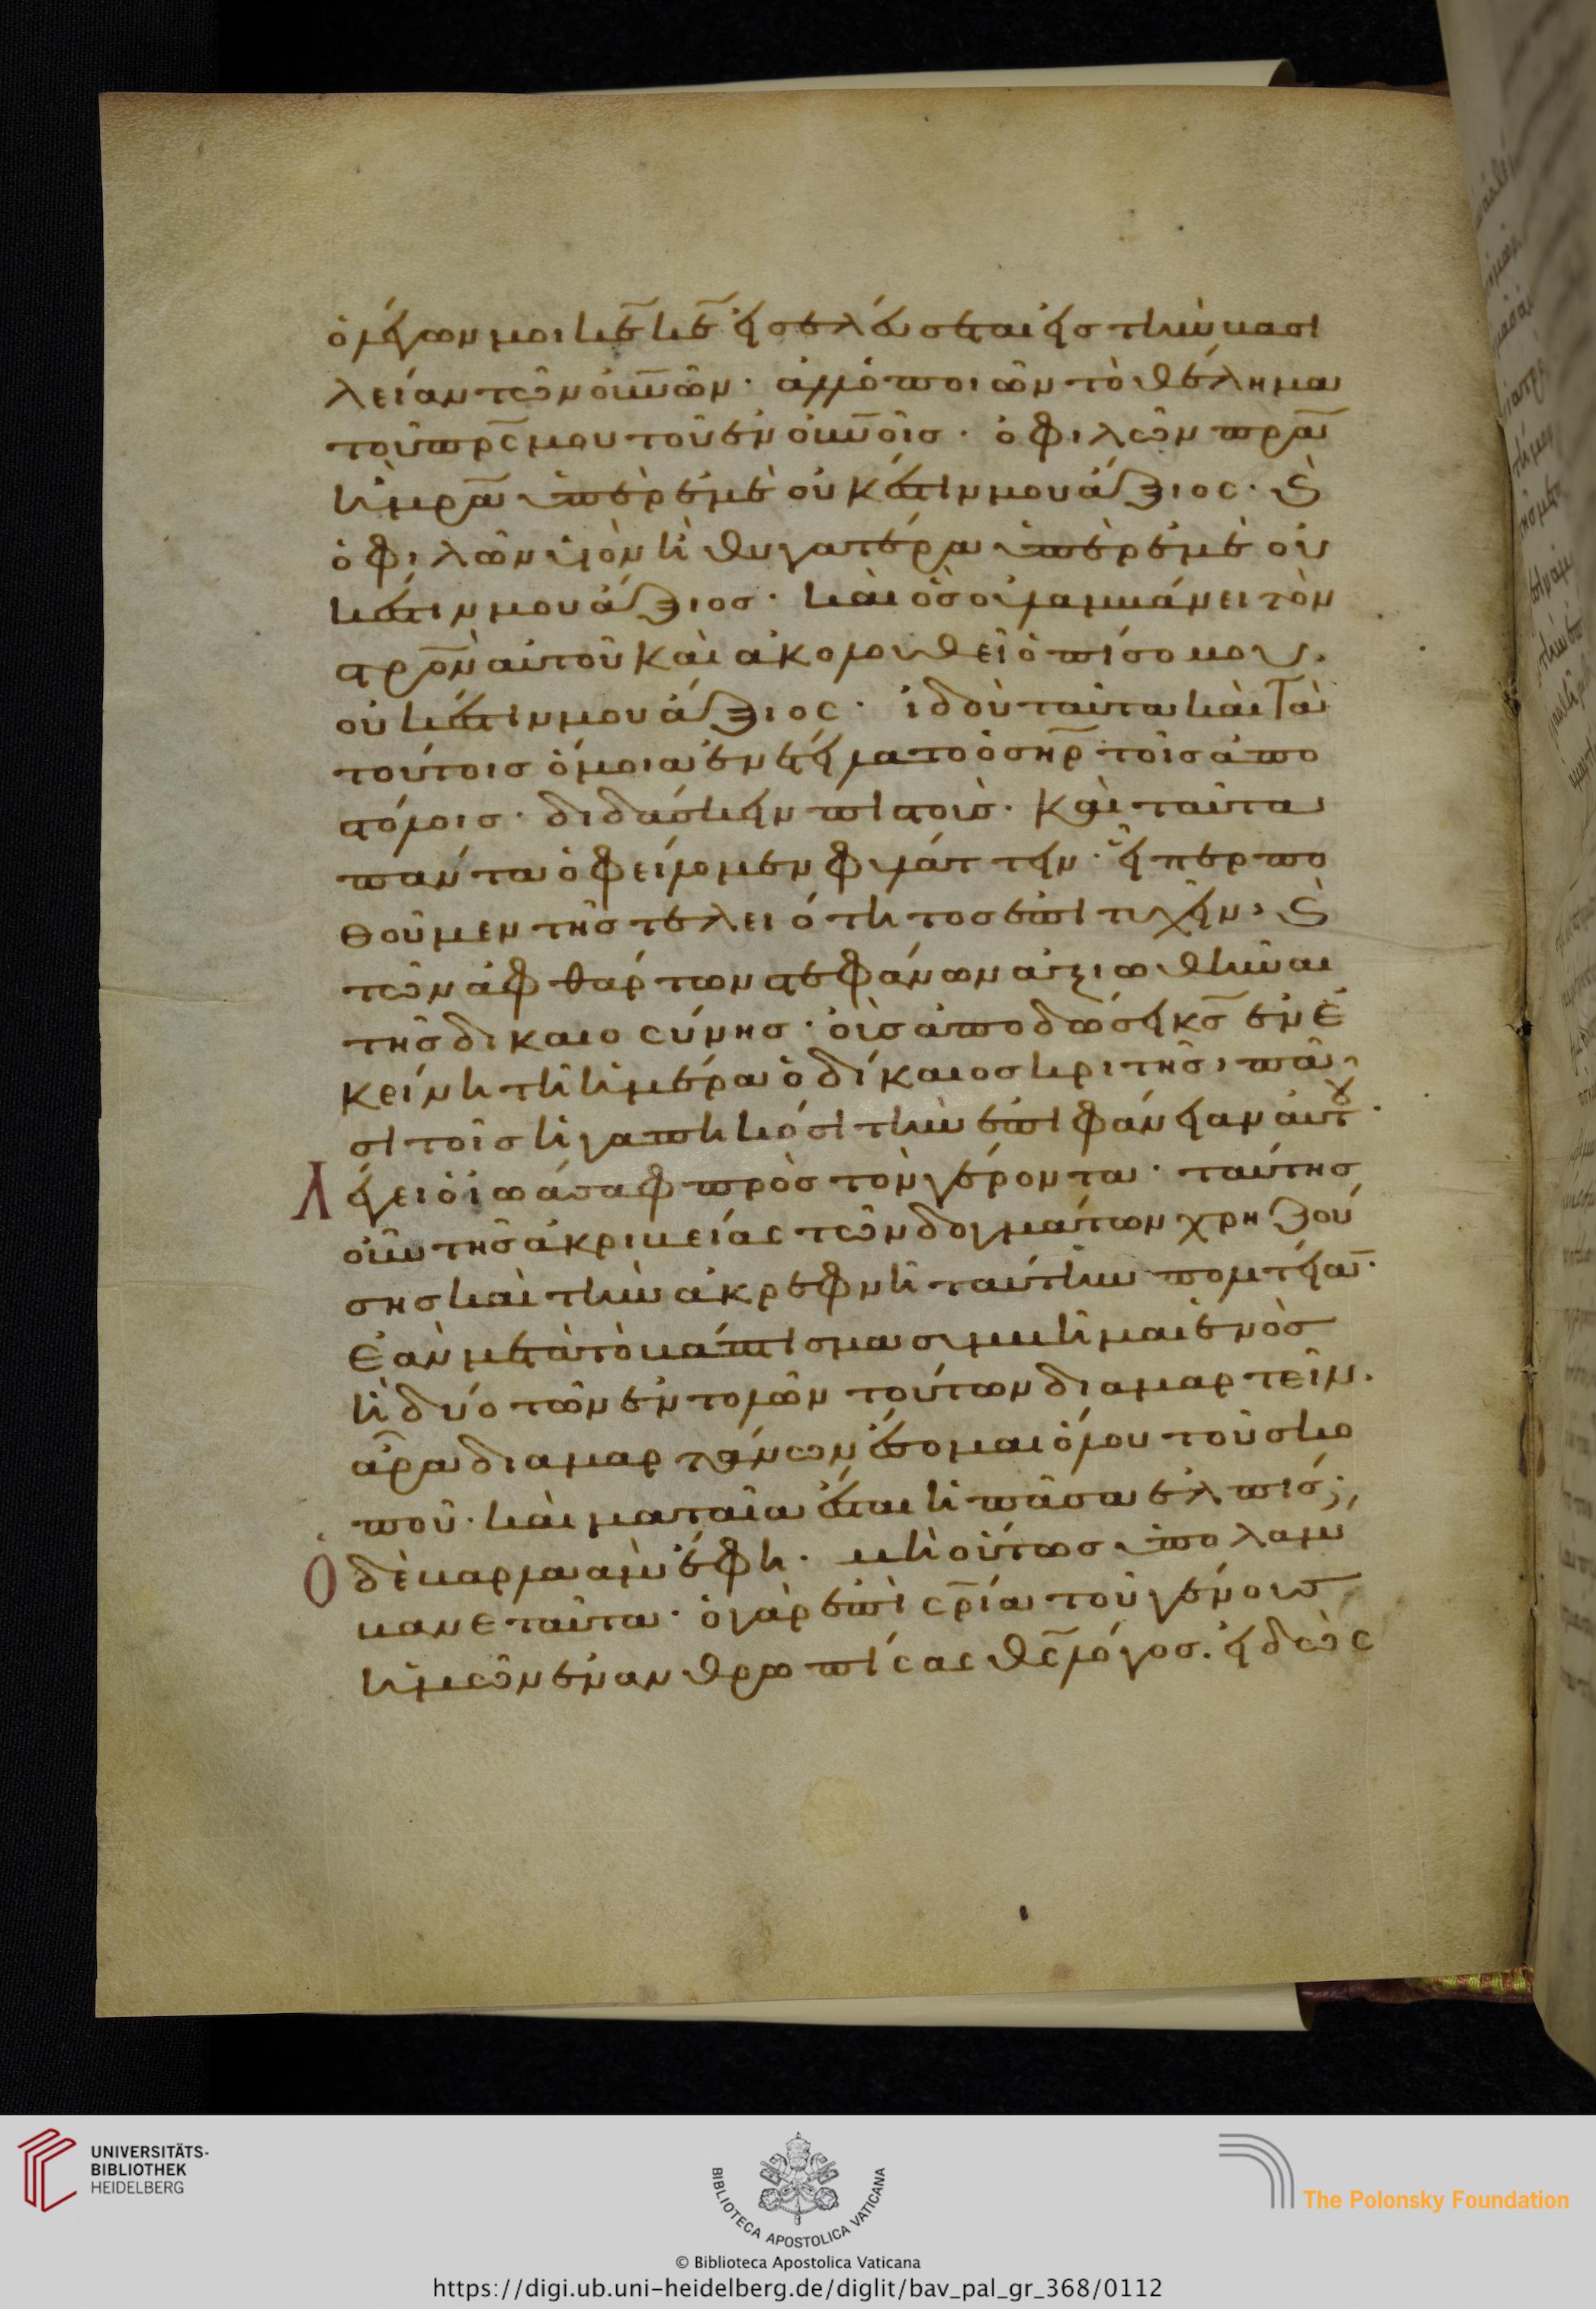 ὁ λέγων μοι κε̅ κε̅ εἰσελεύσεται εἰς τὴν βασι
λείαν τῶν οὐνῶν· ἀλλ' ὁ ποιῶν τὸ θέλημα
τοῦ πρ̅ς μου τοῦ ἐν οὐνοῖς· ὁ φιλῶν πρ̅α
ἢ μρ̅α ὑπὲρ ἐμὲ οὐκ ἔστιν μου ἄξιος· κ(αὶ)
ὁ φιλῶν υἱὸν ἢ θυγατέρα ὑπὲρ ἐμὲ οὐ
κ ἔστιν μου ἄξιος· καὶ ὃς οὐ λαμβάνει τὸν
στρο̅ν αὐτοῦ καὶ ἀκολουθεῖ ὀπίσο μου,
οὐκ ἔστιν μου ἄξιος· ἰδοὺ ταῦτα καὶ τὰ
τούτοις ὅμοια ἐνετείλατο ὁ σηρ̅ τοῖς ἀπο
στόλοις· διδάσκειν πιστοὺς· καὶ ταῦτα
πάντα ὀφείλομεν φυλάττειν· εἴπερ πο
θοῦμεν τῆς τελειότητος ἐπιτυχεῖν, κ(αὶ)
τῶν ἀφθάρτων στεφάνων ἀξιωθῆναι
τῆς δικαιοσύνης· οἷς ἀποδώσει κς̅ ἐν ἐ
κείνη τῆ ἡμέρα ὁ δίκαιος κριτῆς, πᾶ
σι τοῖς ἠγαπηκόσι τὴν ἐπιφάνειαν αὐτοῦ·
Λέγει ὁ ἰωάσαφ πρὸς τὸν γέροντα· ταύτης
οὖν τῆς ἀκριβείας τῶν δογμάτων χρηζού
σης καὶ τὴν ἄκρεφνῆ ταύτην πολιτείαν·
Ἐὰν μετὰ τὸ βάπτισμα συμβῆ μαι ἑνὸς
ἢ δύο τῶν ἐντολῶν τούτων διαμαρτεῖν.
ἆρα διαμαρτάνων ἔσομαι ὅλου τοῦ σκο
ποῦ· καὶ ματαῖα ἔσται ἡ πᾶσα ἐλπίς;,
Ὁ δὲ βαρλαὰμ ἔφη· μὴ οὕτως ὑπολάμ
βανε ταῦτα· ὁ γὰρ ἐπὶ σρ̅ία τοῦ γένους
ἡμῶν ἐνανθρωπίσας θς̅ λόγος. εἰδὼς
UNIVERSITÄTS-
BIBLIOTHEK
HEIDELBERG
BIBLIOTECA APOSTOLICA VATICANA
The Polonsky Foundation
© Biblioteca Apostolica Vaticana
https://digi.ub.uni-heidelberg.de/diglit/bav_pal_gr_368/0112